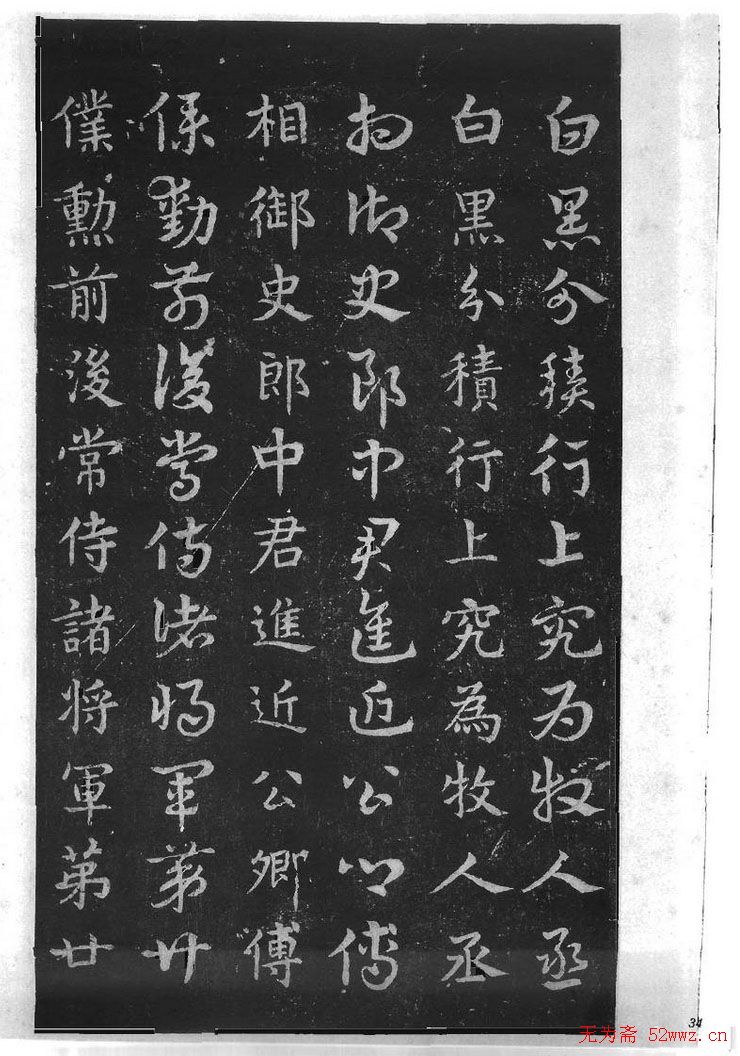 白黑分積行上究為牧人丞
白黑分積行上究為牧人丞
相御史郎中君進近公卿傅
相御史郎中君進近公卿傅
僕勳前後常侍諸將軍第廿
僕勳前後常侍諸將軍第廿
34
无为斋 52wwz.cn